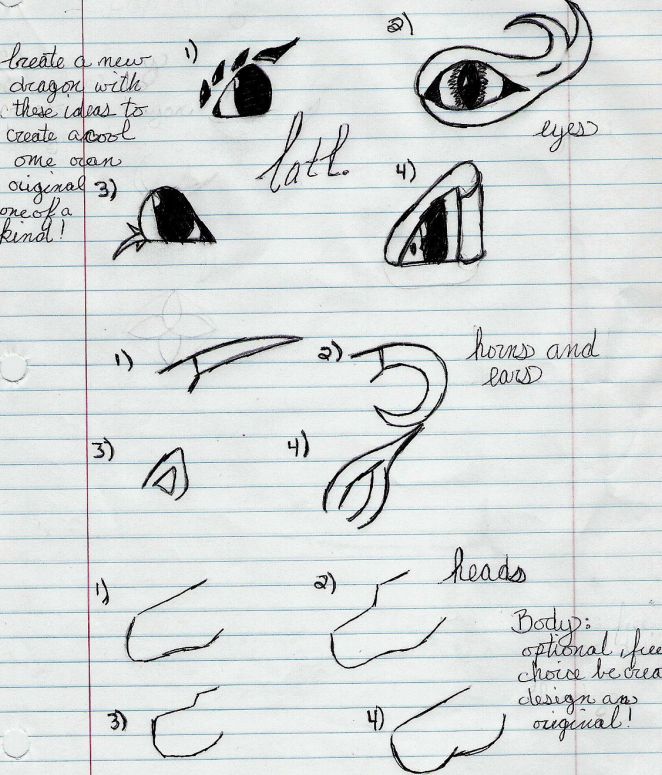 Create a new
dragon with
these ideas to
create a cool
ome oran
original
one of a
kind!
1)
2)
eyes
3)
4)
1)
2)
horns and
ears
3)
4)
1)
2)
heads
3)
4)
Body:
optional, free
choice be crea
design an
original!